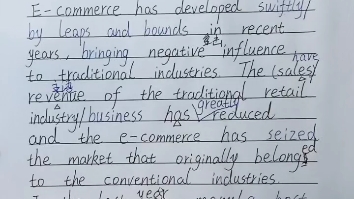 E-commerce has developed swiftly/
by leaps and bounds in recent
years, bringing negative influence
to traditional industries. The (sales/ have
revenue of the traditional retail
industry/business has greatly reduced
and the e-commerce has seized
the market that originally belonged
to the conventional industries.
year